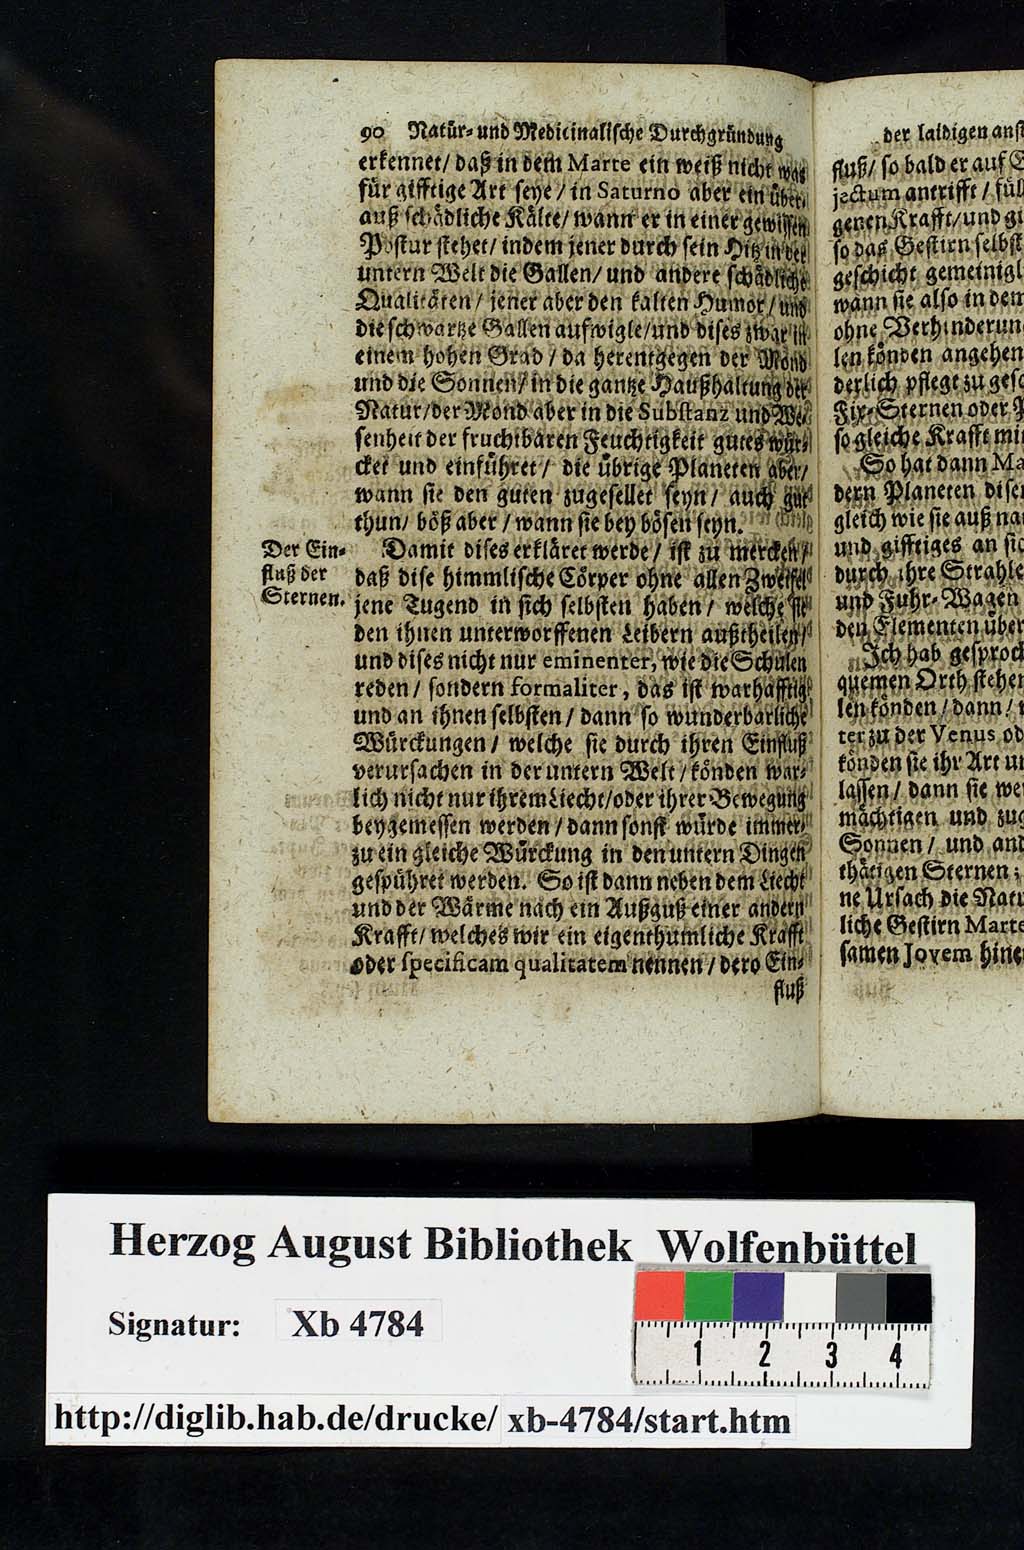 90 Natür- und Medicinalische Durchgründung
erkennet/ daß in dem Marte ein weiß nicht was
für gifftige Art seye/ in Saturno aber ein über-
auß schädliche Kälte/ wann er in einer gewissen
Postur stehet/ indem jener durch sein Hitz in der
untern Welt die Gallen/ und andere schädliche
Qualitäten/ jener aber den kalten Humor/ und
die schwartze Gallen aufwigle/ und dises zwar in
einem hohen Grad/ da herentgegen der Mond
und die Sonnen/ in die gantze Haußhaltung der
Natur/ der Mond aber in die Substanz und We-
senheit der fruchtbaren Feuchtigkeit gutes wür-
cket und einführet/ die übrige Planeten aber/
wann sie den guten zugesellet seyn/ auch gut
thun/ böß aber/ wann sie bey bösen seyn.
Der Ein-
fluß der
Sternen.
Damit dises erkläret werde/ ist zu mercken/
daß dise himmlische Cörper ohne allen Zweifel
jene Tugend in sich selbsten haben/ welche sie
den ihnen unterworffenen Leibern außtheilen/
und dises nicht nur eminenter, wie die Schulen
reden/ sondern formaliter, das ist warhafftig
und an ihnen selbsten/ dann so wunderbarliche
Würckungen/ welche sie durch ihren Einfluß
verursachen in der untern Welt/ könden war-
lich nicht nur ihrem Liecht/ oder ihrer Bewegung
beygemessen werden/ dann sonst würde immer-
zu ein gleiche Würckung in den untern Dingen
gespühret werden. So ist dann neben dem Liecht
und der Wärme nach ein Außguß einer andern
Krafft/ welches wir ein eigenthumliche Krafft
oder specificam qualitatem nennen/ dero Ein-
fluß
der laidigen
fluß/ so bald er auf
jectum antrifft/
genen Krafft/ und
so das Gestirn selbst
geschicht
wann sie also in dem
ohne Verhinderung
len könden angehen
derlich pflegt zu
Fix-Sternen oder
so gleiche Krafft mit
So hat dann
dern Planeten
gleich wie sie auß
und gifftiges an
durch ihre
und Fuhr-Wagen
den Elementen
Ich hab
quemen Orth
len könden/ dann/
ter zu der Venus
könden sie ihr Art
lassen/ dann sie
mächtigen und
Sonnen/ und
thätigen Sternen;
ne Ursach die
liche Gestirn Marte
samen Jovem
Herzog August Bibliothek Wolfenbüttel
Signatur: Xb 4784
1 2 3 4
http://diglib.hab.de/drucke/ xb-4784/start.htm